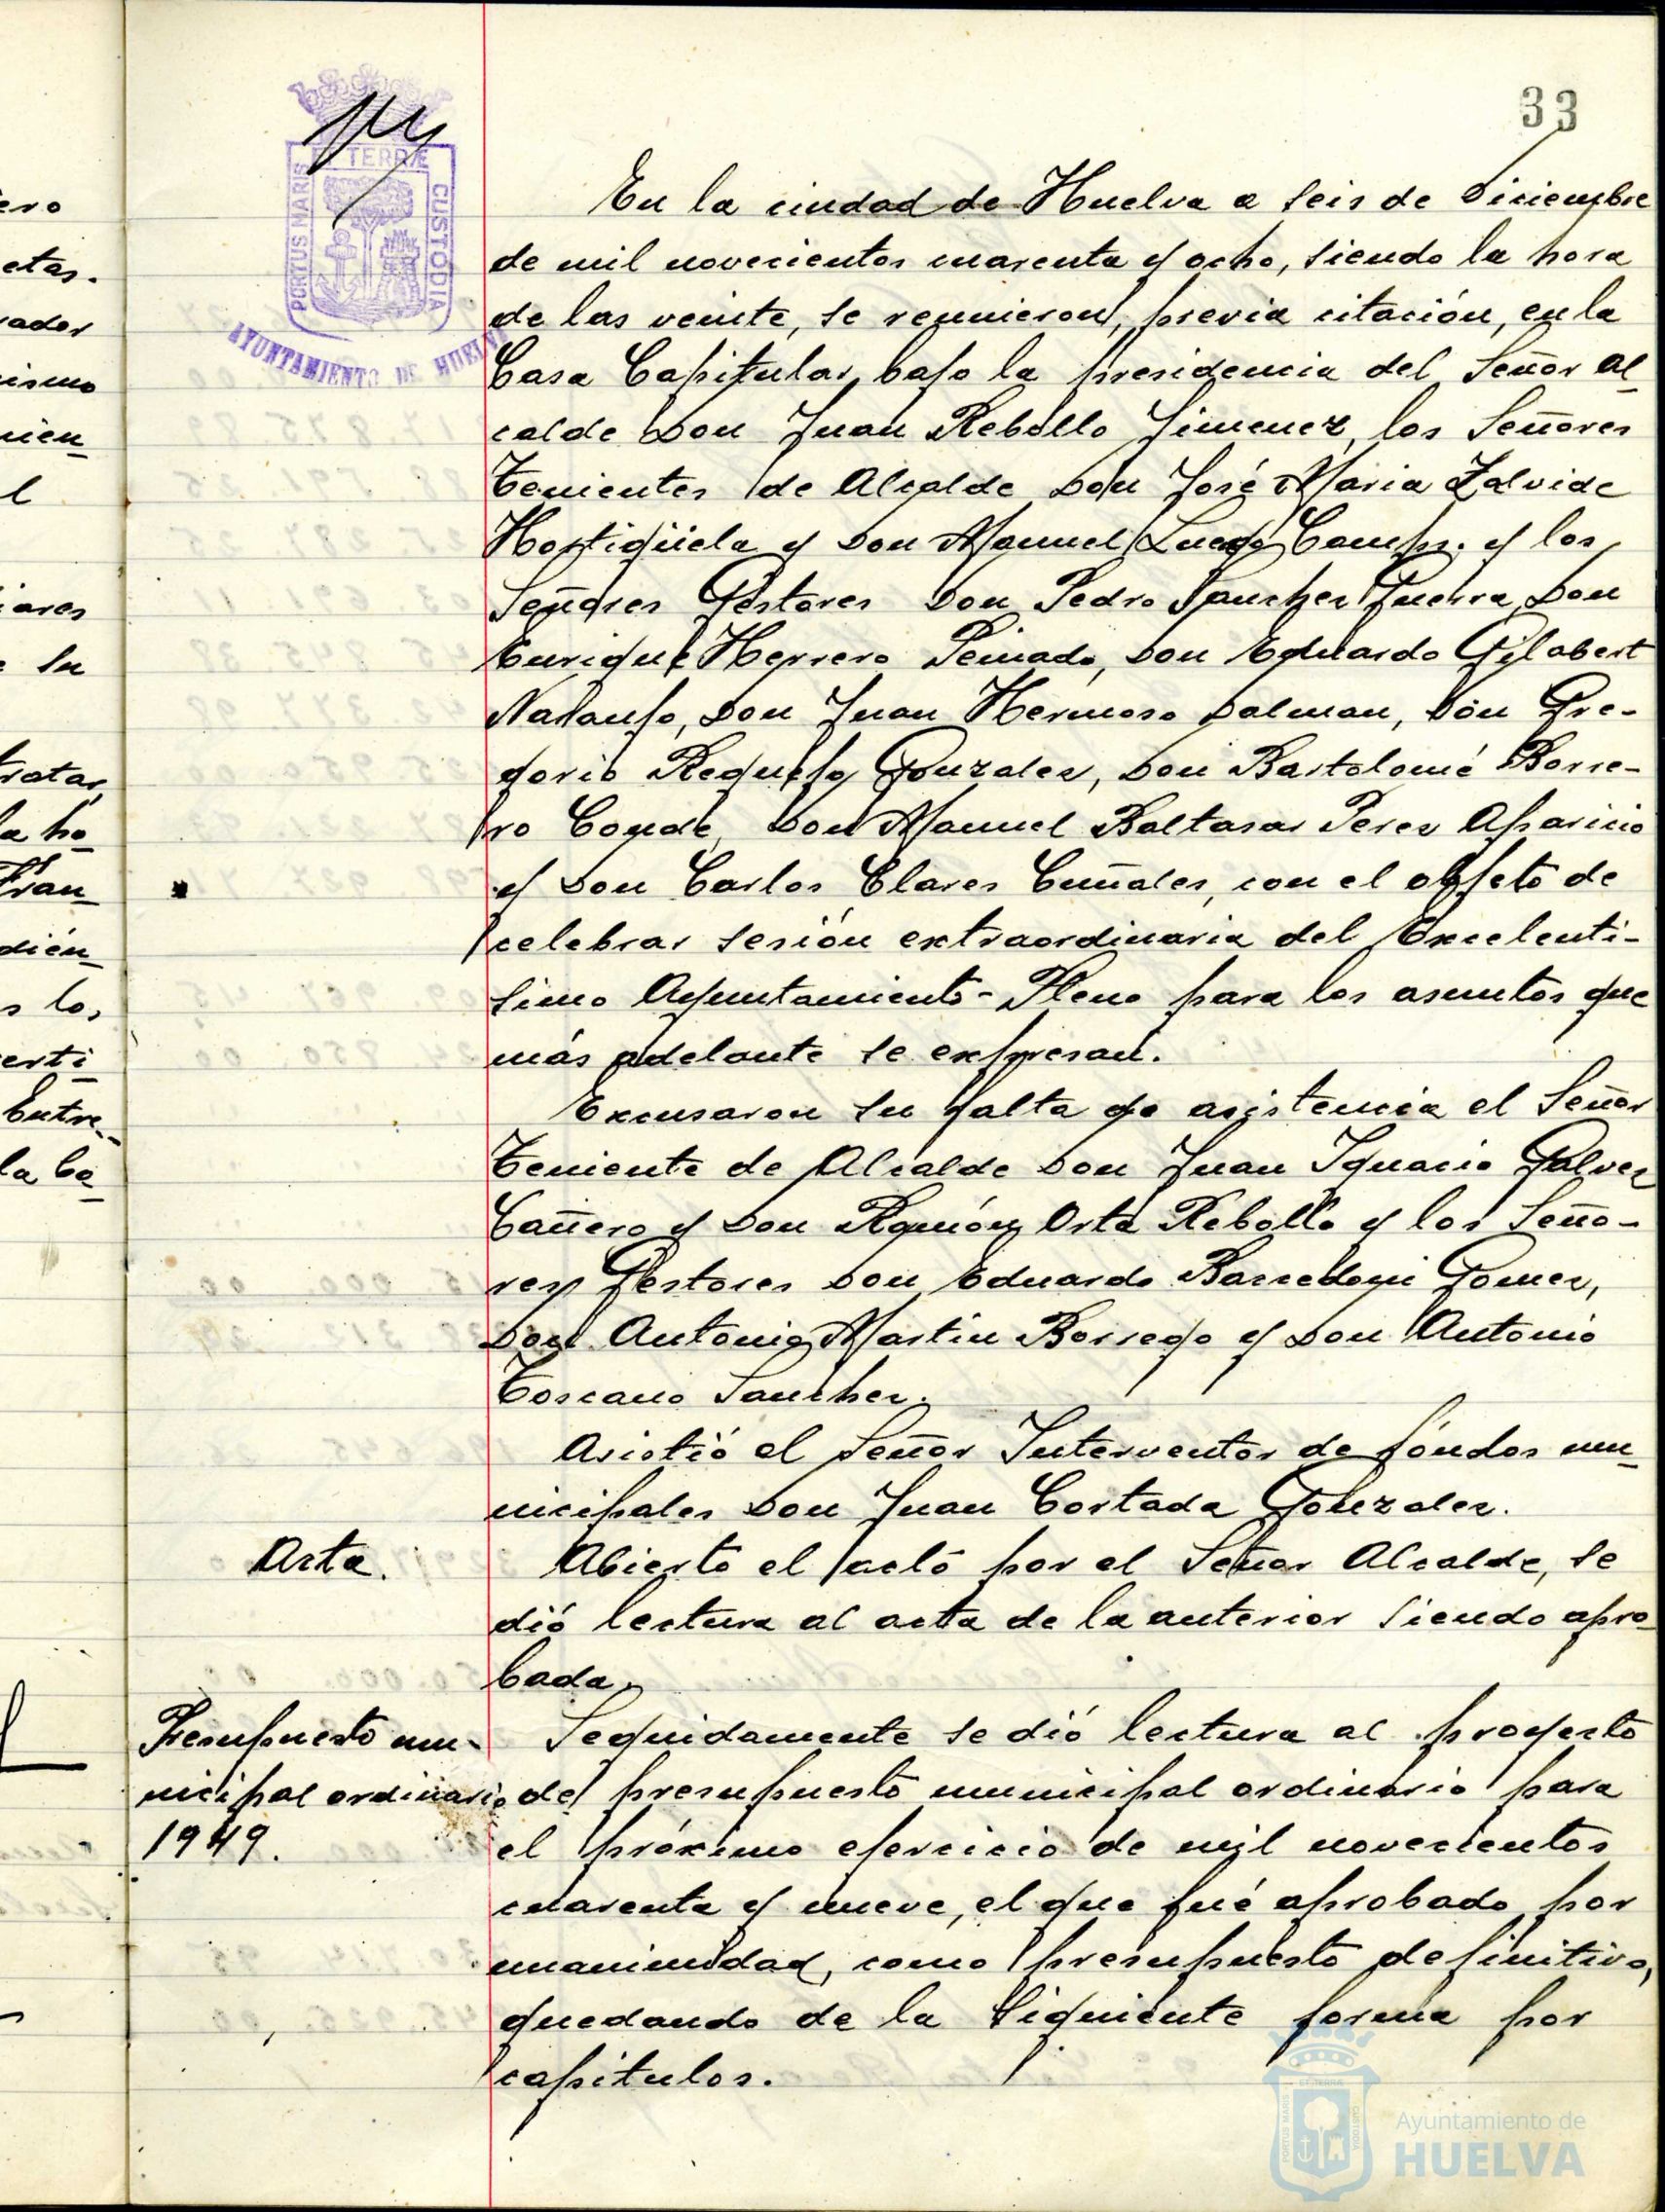 33
PORTUS MARIS
ET TERRÆ
CUSTODIA
AYUNTAMIENTO DE HUELVA
En la ciudad de Huelva a seis de Diciembre
de mil novecientos cuarenta y ocho, siendo la hora
de las veinte, se reunieron, previa citación, en la
Casa Capitular, bajo la presidencia del Señor Al-
calde Don Juan Rebollo Jimenez, los Señores
Tenientes de Alcalde Don José Maria Zalvide
Hortigüela y Don Manuel Luego Camps. y los
Señores Gestores Don Pedro Sanchez Guerra, Don
Enrique Herrero Peinado, Don Eduardo Gilabert
Naranjo, Don Juan Hermoso Dalman, Don Gre-
gorio Requejo Gonzalez, Don Bartolomé Borre-
ro Conde, Don Manuel Baltasar Perez Aparicio
y Don Carlos Clares Cuñales, con el objeto de
celebrar sesión extraordinaria del Excelenti-
simo Ayuntamiento-Pleno para los asuntos que
más adelante se expresan.
Excusaron su falta de asistencia el Señor
Teniente de Alcalde Don Juan Ignacio Galvez
Cañero y Don Ramón Orta Rebollo y los Seño-
res Gestores Don Eduardo Gomez,
Don Antonio Martin Borrego y Don Antonio
Toscano Sanchez.
Asistió el Señor Interventor de fóndos mu-
nicipales Don Juan Cortada Gonzalez.
Acta.
Abierto el acto por el Señor Alcalde, se
dió lectura al acta de la anterior siendo apro-
bada.
Presupuesto mu-
nicipal ordinario
1949.
Seguidamente se dió lectura al proyecto
del presupuesto municipal ordinario para
el próximo ejercicio de mil novecientos
cuarenta y nueve, el que fué aprobado por
unanimidad, como presupuesto definitivo,
quedando de la siguiente forma por
capitulos.
ero
etas.
ador
ismo
l
iares
su
tratar
la ho
Fran
dién
s los
erti
Entre-
la Ca
Ayuntamiento de
HUELVA